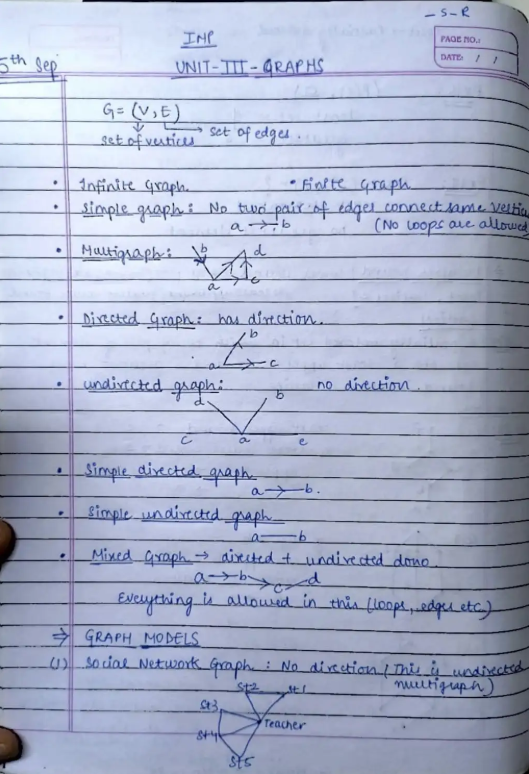 - S - R
IMP
PAGE NO.:
DATE: / /
5th Sep
UNIT-III-GRAPHS
G = (V, E)
set of vertices
set of edges.
• Infinite Graph.
• Finite Graph
• Simple graph: No two pair of edges connect same
a → b
(No loops are allowed
• Multigraph:
b
d
a
c
• Directed Graph: has direction.
b
a
c
• undirected graph:
no direction.
d
b
c
a
e
• Simple directed graph
a → b.
• Simple undirected graph
a — b
• Mixed Graph → directed + undirected dono.
a → b
c
d
Everything is allowed in this (loops, edges etc.)
⇒ GRAPH MODELS
(1) Social Network Graph : No direction (This is undirected
multigraph)
St2
St1
St3
Teacher
St4
St5